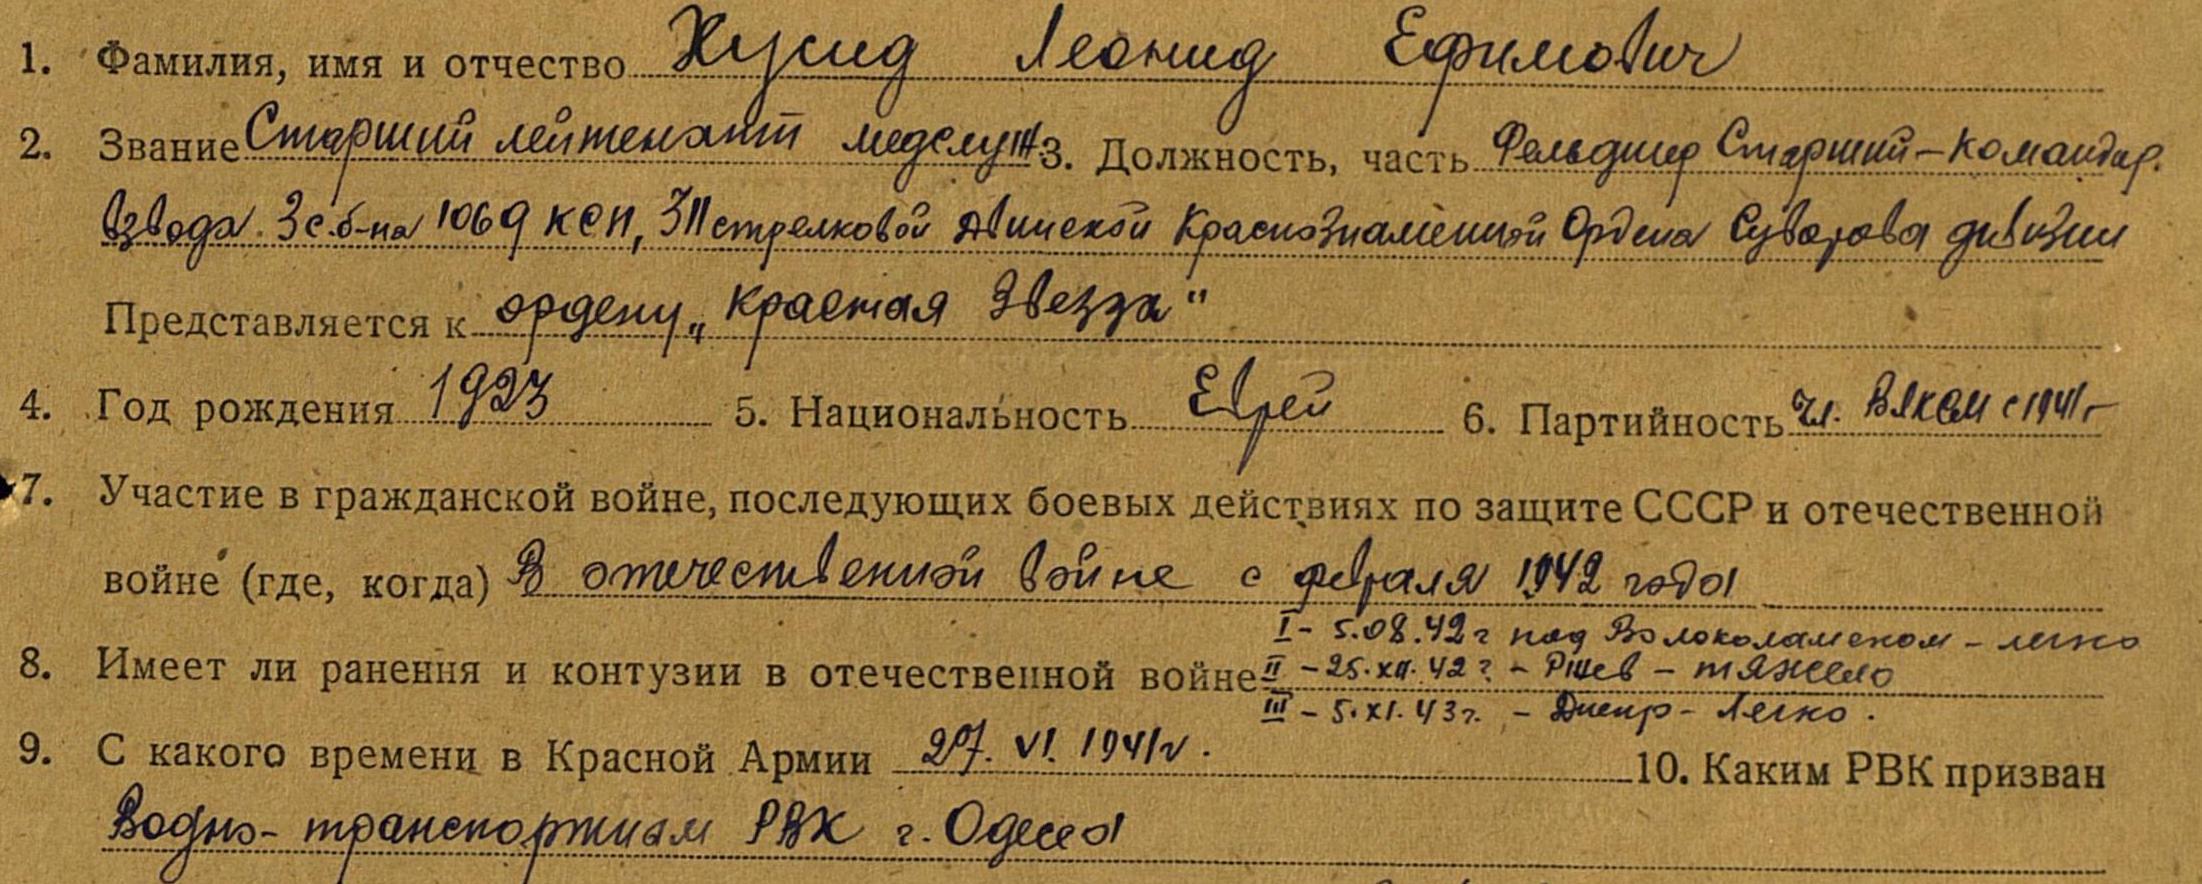 1. Фамилия, имя и отчество Хусид Леонид Ефимович
2. Звание Старший лейтенант медслуж 3. Должность, часть Фельдшер Старший – командир
взвода 3 с.б-на 1069 КСП, 311 стрелковой Двинской Краснознаменной Ордена Суворова дивизии
Представляется к ордену „Красная Звезда"
4. Год рождения 1923 5. Национальность Еврей 6. Партийность чл. ВЛКСМ с 1941г
7. Участие в гражданской войне, последующих боевых действиях по защите СССР и отечественной
войне (где, когда) В отечественной войне с февраля 1942 года
I – 5.08.42г под Волоколамском – легко
8. Имеет ли ранения и контузии в отечественной войне II – 25.XII.42г. – Ржев – тяжело
III – 5.XI.43г. – Днепр – Легко.
9. С какого времени в Красной Армии 27.VI.1941г. 10. Каким РВК призван
Водно-транспортным РВК г. Одесса